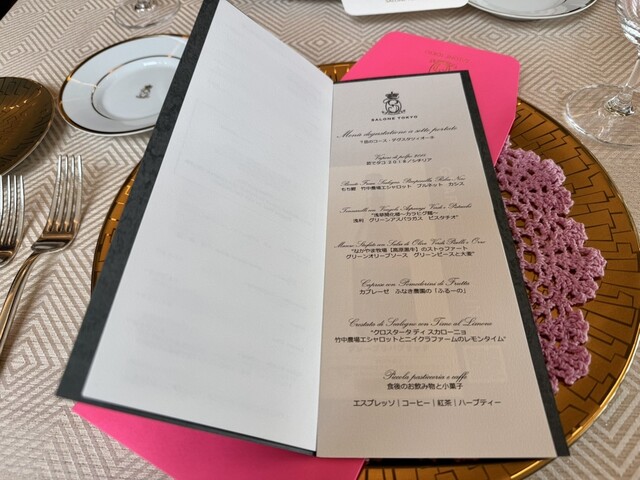 SALONE TOKYO
Menù degustazione a sette portate
7皿のコース・デグスタツィオーネ
Vapore di polpo 2014
茹でダコ 2014 / シチリア
もち豚 竹中農場エシャロット プルネット カシス
浅利 グリーンアスパラガス ピスタチオ"
"なかやま牧場【高原黒牛】のストゥファート
グリーンオリーブソース グリーンピースと大麦"
Caprese con Pomodorini di Frutta
カプレーゼ ふなき農園の「ふるーの」
Crostata di Scalogno con Timo al Limone
"クロスタータ ディ スカローニョ
竹中農場エシャロットとニイクラファームのレモンタイム"
Piccola pasticceria e caffè
食後のお飲み物と小菓子
エスプレッソ | コーヒー | 紅茶 | ハーブティー